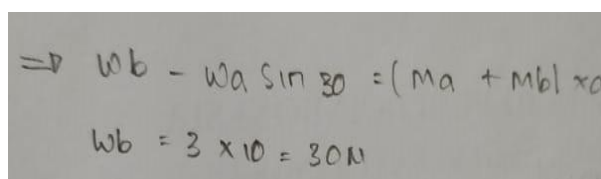 => Wb - Wa Sin 30 = (Ma + Mb) x
Wb = 3 x 10 = 30N